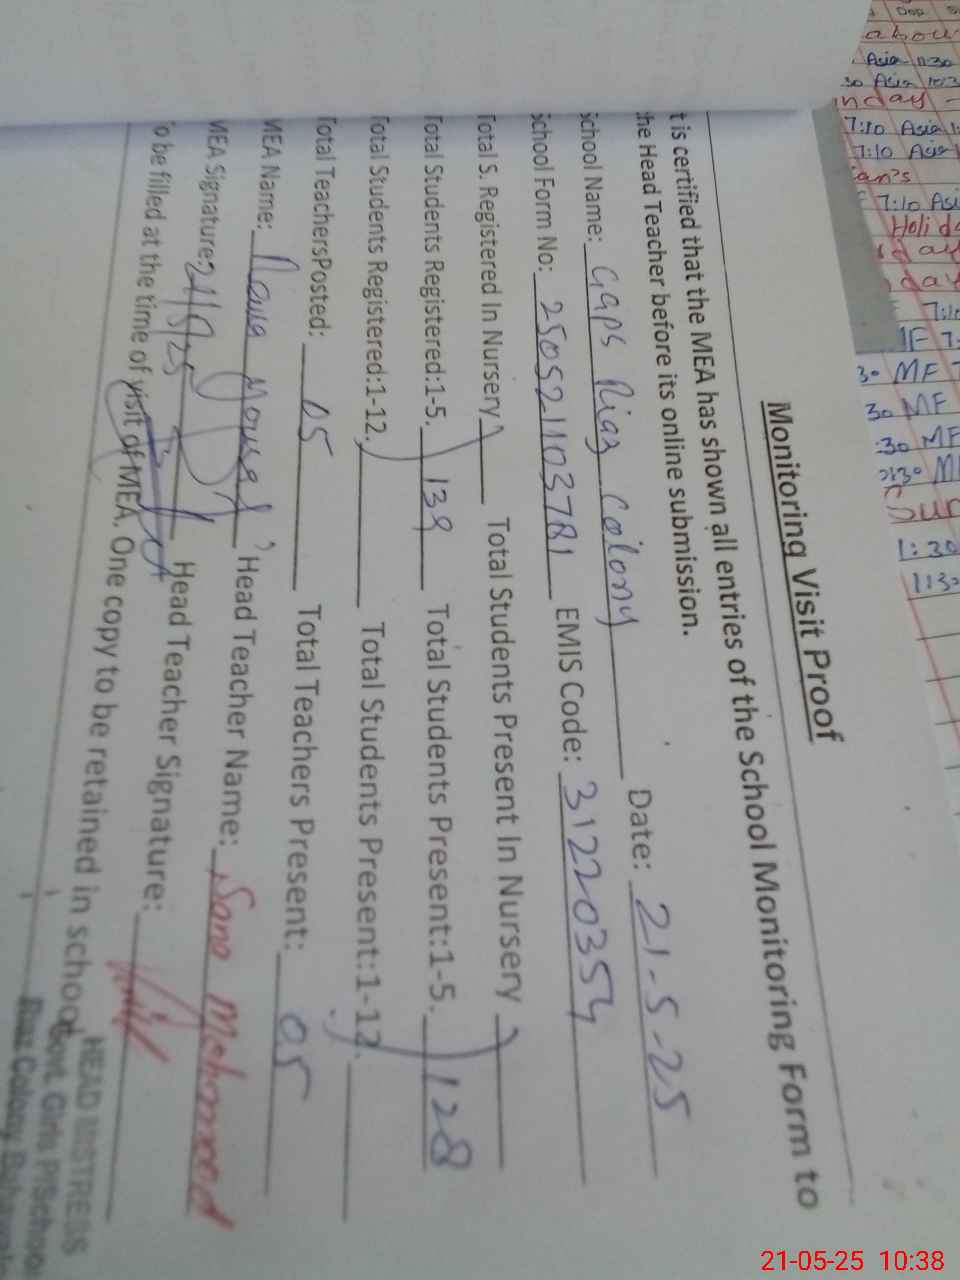 Monitoring Visit Proof
t is certified that the MEA has shown all entries of the School Monitoring Form to
he Head Teacher before its online submission.
School Name: GGPS Riaz Colony Date: 21-5-25
School Form No: 250521103781 EMIS Code: 31220354
Total S. Registered In Nursery Total Students Present In Nursery
Total Students Registered:1-5. 139 Total Students Present:1-5. 128
Total Students Registered:1-12. Total Students Present:1-12.
Total TeachersPosted: 05 Total Teachers Present: 05
MEA Name: Head Teacher Name: Sana Mehmood
MEA Signature: 21/5/25 Head Teacher Signature:
o be filled at the time of visit of MEA, One copy to be retained in school
HEAD MISTRESS
Govt. Girls P/School
Riaz Colony Bahawal
21-05-25 10:38